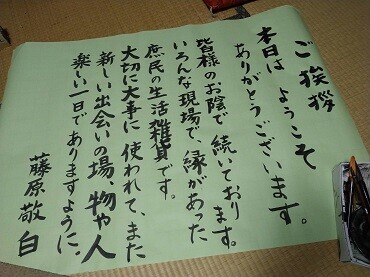 ご挨拶
本日は ようこそ
ありがとうございます。
皆様のお陰で 続いており
ます。
いろんな現場で、縁があった
庶民の生活雑貨です。
大切に大事に 使われて、また
新しい出会いの場 物や人
楽しい一日でありますように。
藤原敬白